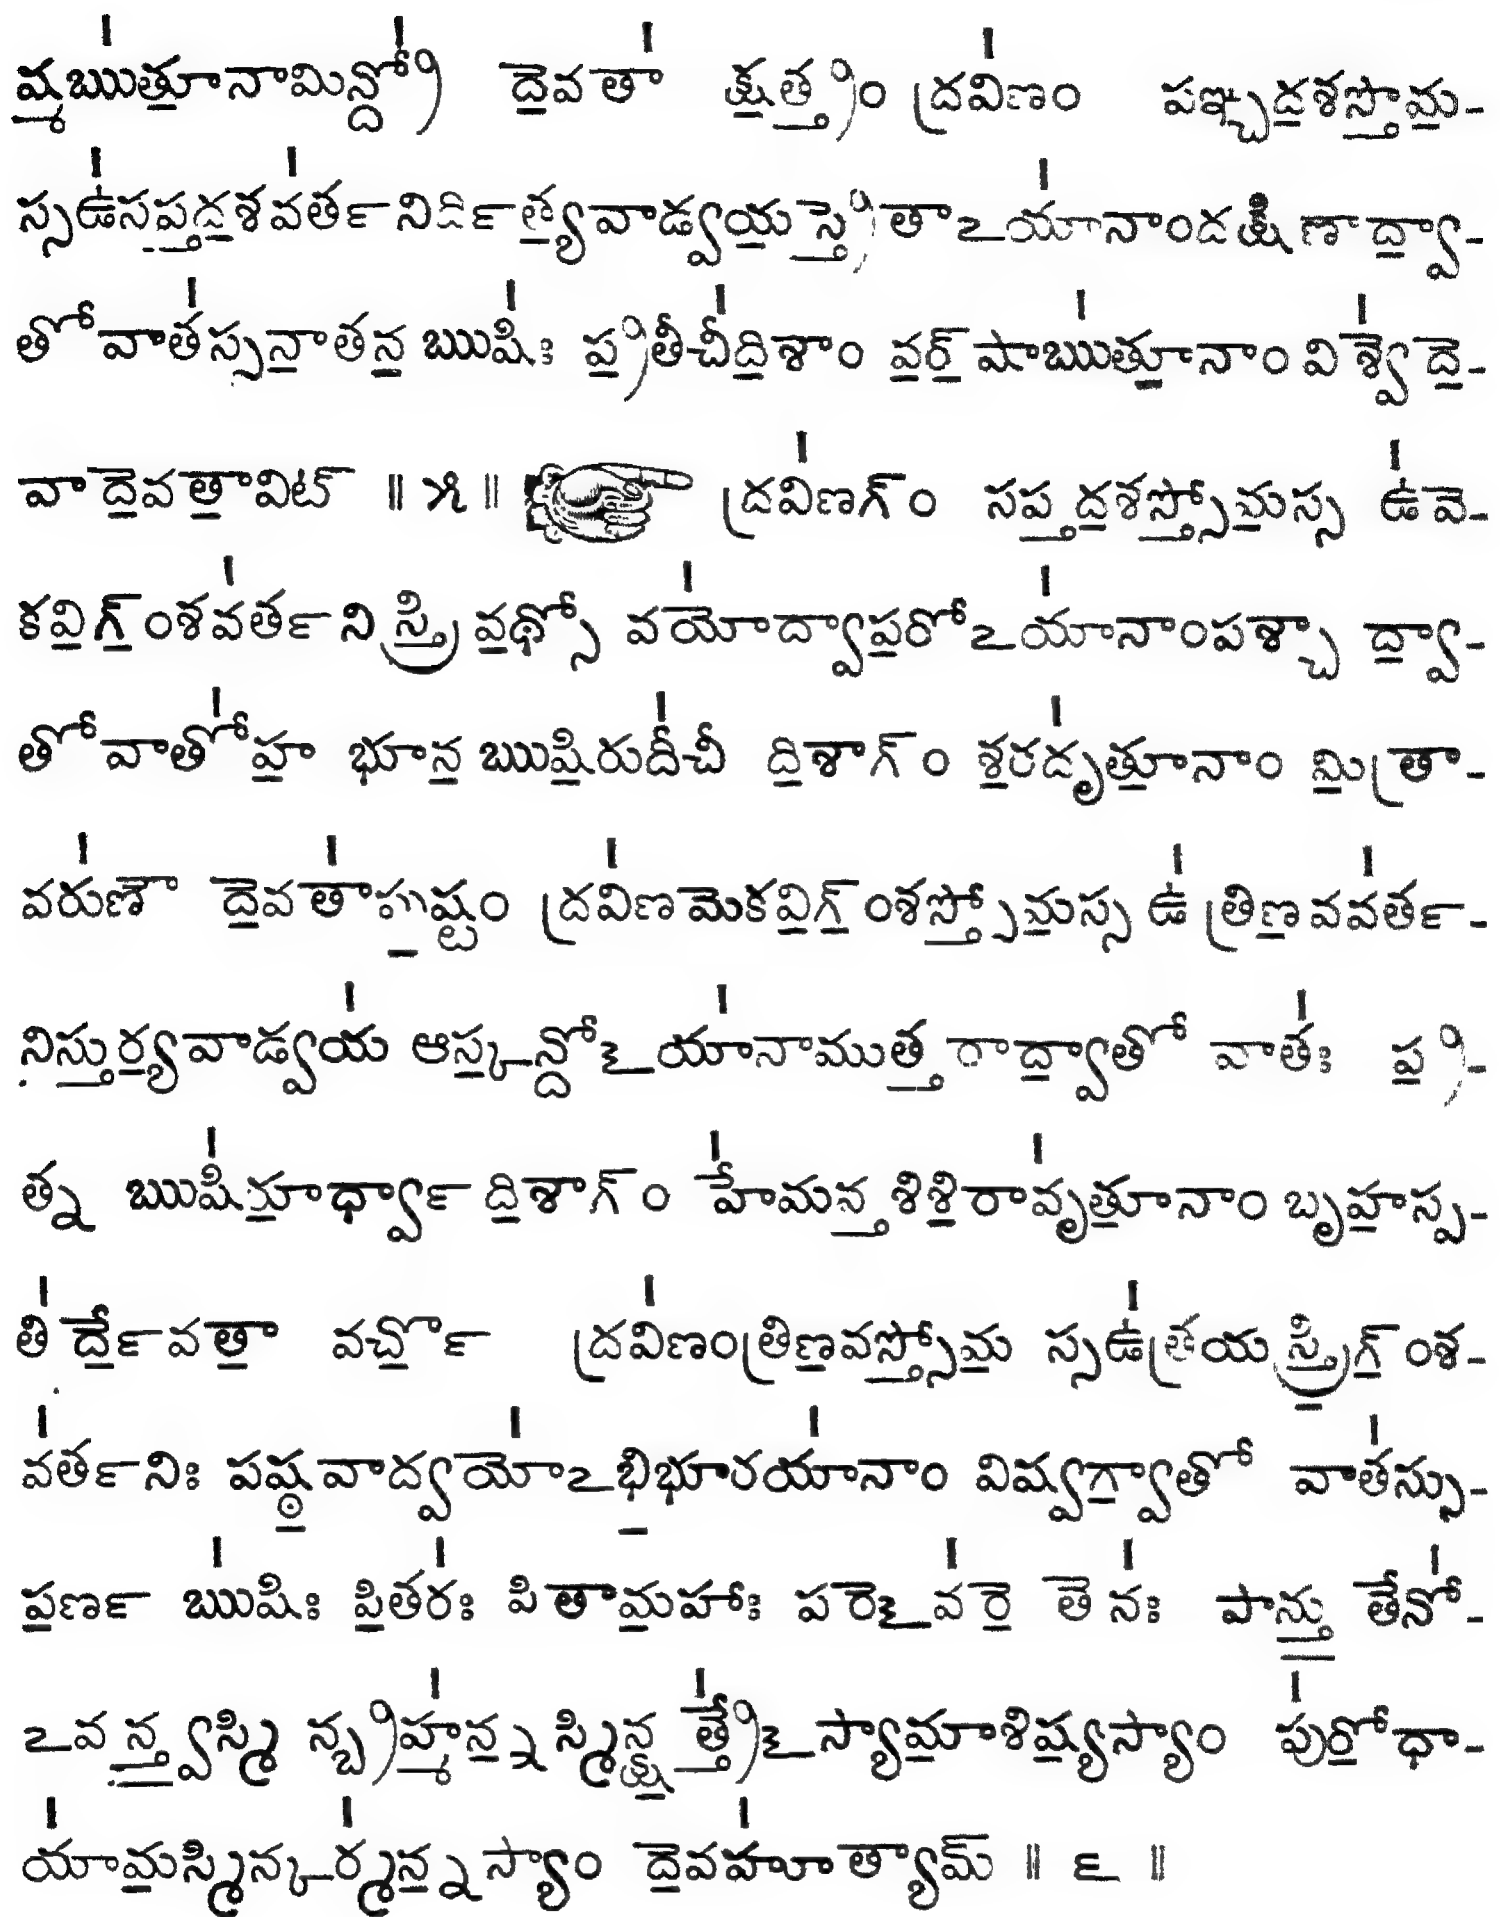 ష్మఋత్తూ॒నామిన్ద్రో॑ దే॒వతా॑ క్ష॒త్త్రం ద్రవి॑ణం పఞ్చద॒శస్తోమ॒-
స్సఉ॑సప్త॒ద॒శవ॑ర్తనిర్ది॒త్య॒వాడ్వయ॒స్త్రే॒తాఽయా॑నాందక్షిణా॒ద్వా-
తోవాత॑స్సనా॒తన॒ ఋషిః॑ ప్ర॒తీచీ॑ది॒శాం వ॒ర్॒షాఋ॑త్తూ॒నాం విశ్వే॑దే॒-
వాదే॒వతా॒విట్ ॥ ౫ ॥ ☞ ద్రవి॑ణగ్ం సప్త॒ద॒శస్తో॒మ॒స్స ఉ॑ వే-
కవి॒గ్॒ంశవ॑ర్తనిస్త్రి॒వ॒థ్సో వయో॑ద్వాప॒రోఽయా॑నాంపశ్చా ద్వా॒-
తోవాతో॑హ॒ భూన॒ ఋషి॒రుదీ॑చీ ది॒శాగ్ం శ॒రదృ॑త్తూ॒నాం మి॒త్రా-
వరు॑ణౌ దే॒వతా॑పు॒ష్టం ద్రవి॑ణమేకవి॒గ్॒ంశస్తో॒మ॒స్స ఉ॑ త్రిణ॒వవ॑ర్త-
నిస్తు॒ర్య॒వాడ్వయ॑ ఆస్క॒న్దోఽయా॑నాముత్త॒రాద్వా॒తో వాతః॑ ప్ర॒-
త్న ఋషి॑రూ॒ర్ధ్వా ది॒శాగ్ం హే॑మన్త॒శిశి॒రావృ॑త్తూ॒నాం బృహ॒స్ప-
తి॑ర్దే॒వతా॒ వర్చో॒ ద్రవి॑ణంత్రిణ॒వస్తో॒మ॒ స్సఉ॑త్రయస్త్రి॒గ్॒ంశ-
వ॑ర్తనిః పష్ఠ॒వాద్వయో॑ఽభి॒భూరయా॑నాం విష్వగ్వా॒తో వాత॑స్సు-
ప॒ర్ణ ఋషిః॑ పి॒తరః॑ పితామ॒హాః పరేఽవ॑రే॒ తేనః॑ పాన్తు॒ తేనో॑-
ఽవన్త్వ॒స్మి న్బ్రహ్మ॑న్న॒స్మిన్క్ష॒త్త్రే॑ఽస్యామా॒శిష్య॒స్యాం పు॑రో॒ధా-
యా॑మ॒స్మిన్కర్మ॑న్న॒స్యాం దే॒వహూ॑త్యా॒మ్ ॥ ౬ ॥